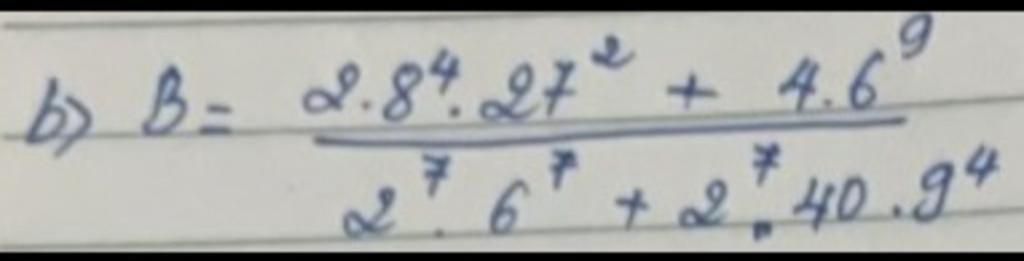 b) B = \frac{2.8^4.27^2 + 4.6^9}{2^7.6^7 + 2^7.40.9^4}